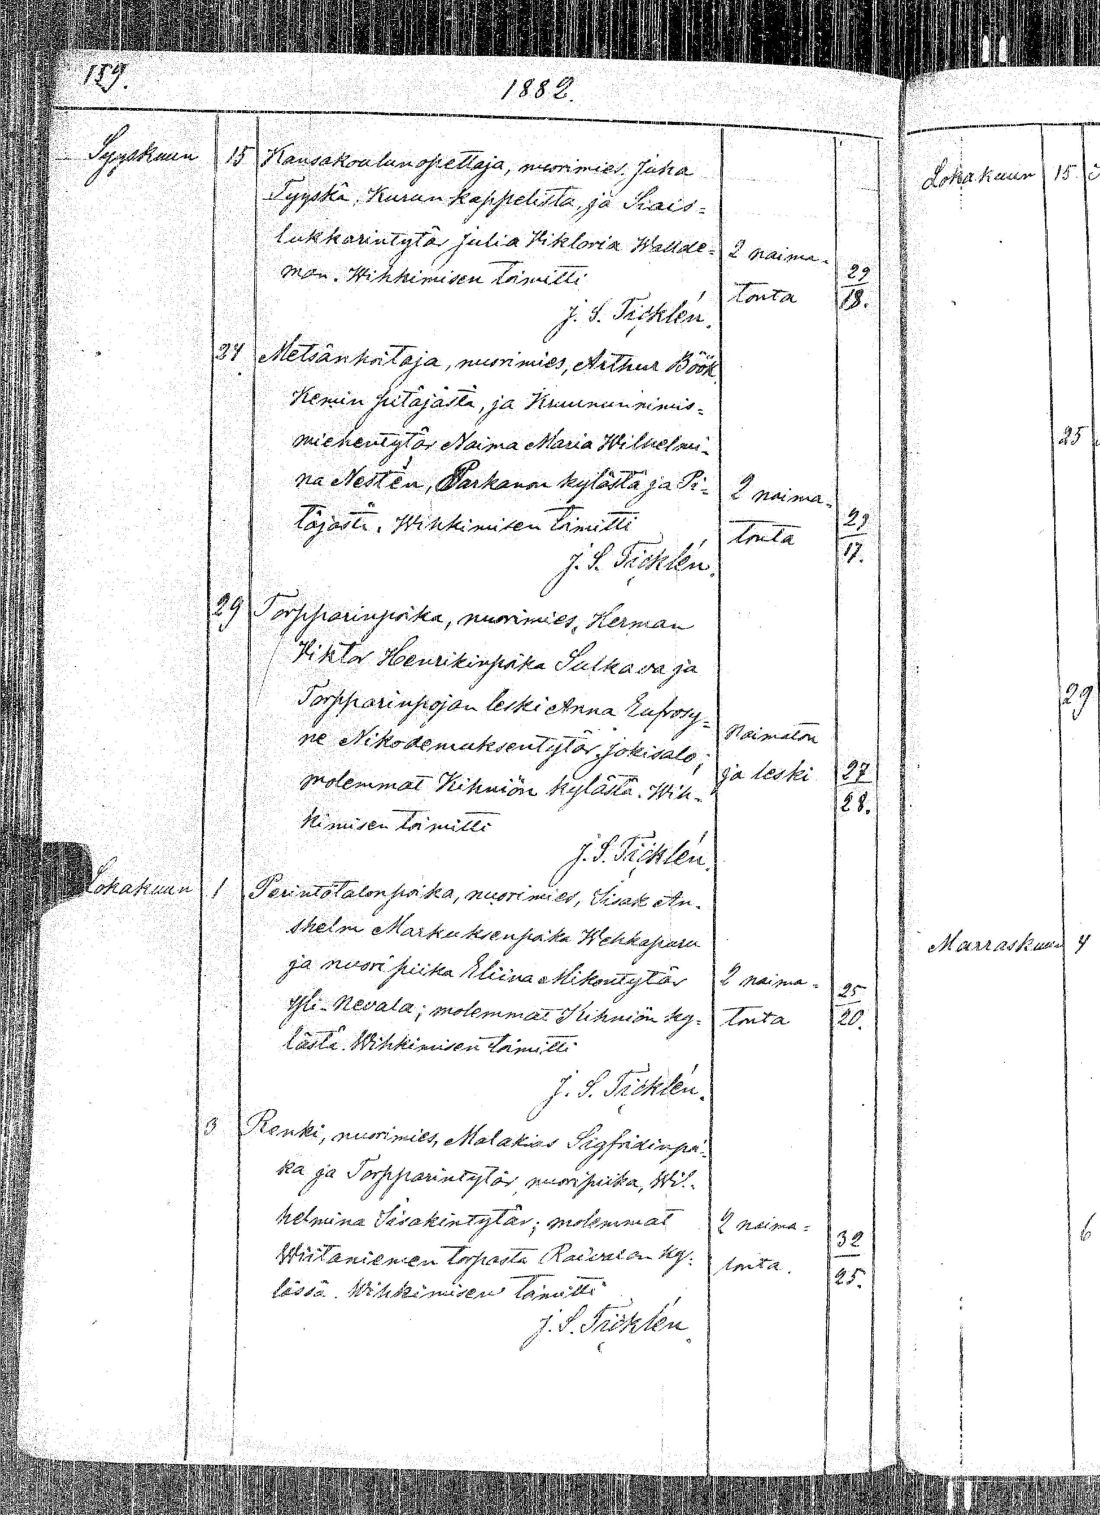 159.
1882.
Syyskuun 15 Kansakoulunopettaja, nuorimies, Juha
Tyyskä, Kurun kappelista, ja Siais-
lukkarintytär Julia Viktoria Wallde-
man. Wihkimisen toimitti
2 naima-
tonta
29
18.
J. S. Ticklén.
24. Metsänhoitaja, nuorimies, Arthur Böök
Kemin pitäjästä, ja Kruununnimis-
miehentytär Naima Maria Wilhelmi-
na Nestén, Parkanon kylästä ja Pi-
täjästä. Wihkimisen toimitti
2 naima-
tonta
29
17.
J. S. Ticklén.
29 Torpparinpoika, nuorimies, Herman
Viktor Henrikinpoika Sulkava ja
Torpparinpojan leski Anna Eufrosy-
ne Nikodemuksentytär Jokisalo;
molemmat Kihniön kylästä. Wih-
kimisen toimitti
Naimaton
ja leski
27
28.
J. S. Ticklén.
Lokakuun 1 Perintötalonpoika, nuorimies, Iisak An-
shelm Markuksenpoika Wehkaperu
ja nuori piika Eliina Mikontytär
Yli-Nevala; molemmat Kihniön ky-
lästä. Wihkimisen toimitti
2 naima-
tonta
25
20.
J. S. Ticklén.
3 Renki, nuorimies, Malakias Sigfridinpoi-
ka ja Torpparintytär, nuoripiika, Wil-
helmina Iisakintytär; molemmat
Wiitaniemen torpasta Raivalan ky-
lässä. Wihkimisen toimitti
2 naima-
tonta.
32
25.
J. S. Ticklén.
Lokakuun 15
25
29
Marraskuun 4
6